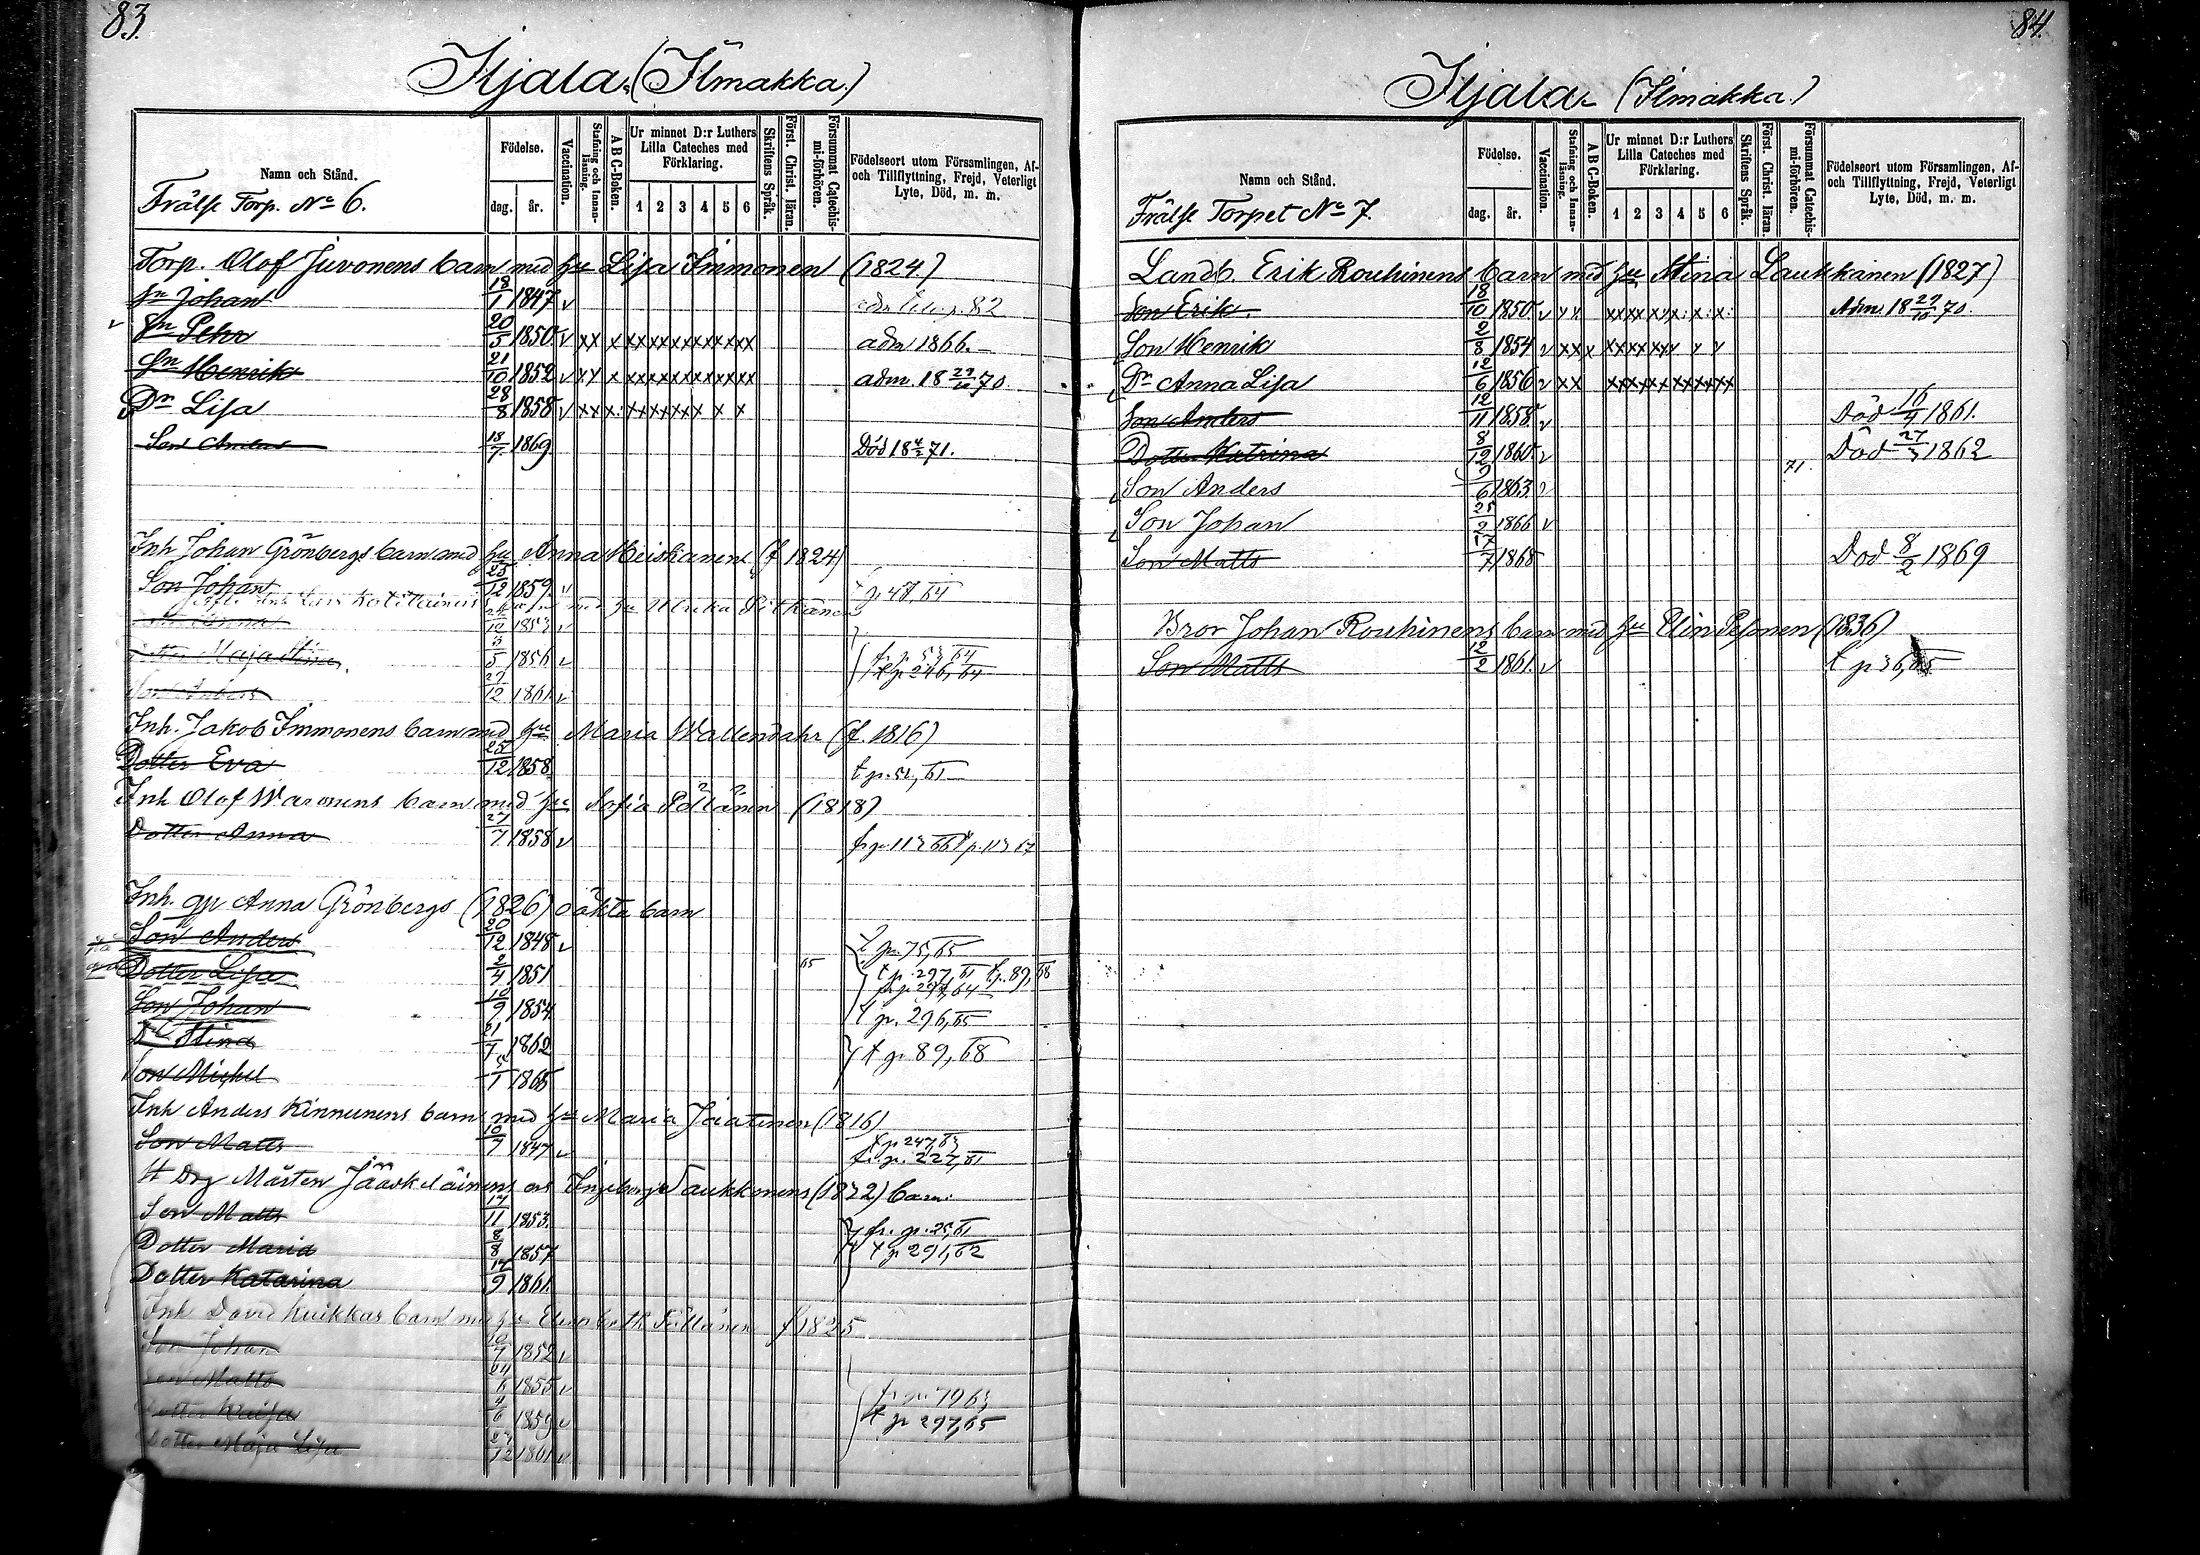 83.
Iljala. (Ilmakka.)
Namn och Stånd.
Frälse Torp. No 6.
Födelse.
dag. år.
Vaccination.
Stafning och Innanläsning.
A B C-Boken.
Ur minnet D:r Luthers Lilla Cateches med Förklaring.
1 2 3 4 5 6
Skriftens Språk.
Först. Christ. läran.
Försummat Catechismi-förhören.
Födelseort utom Församlingen, Af- och Tillflyttning, Frejd, Veterligt Lyte, Död, m. m.
Torp. Olof Juvonens barn med hu Lisa Immonen (1824)
Sn Johan 18/1 1847 v p. 82
v Sn Pehr 20/5 1850 v xx x xxxxxxxxxxxx adm 1866.
Sn Henrik 21/10 1852 v xx x xxxxxxxxxxxx adm. 18 23/10 70
Dr Lisa 28/8 1858 v xx x: xxxxxxx x x
Son 18/7 1869 Död 18 4/2 71.
Inh Johan Grönbergs barn med hu Anna Meiskanen (f 1824)
Son Johan 25/12 1859 v p 47, 64
hu Ulrika Pitkänen
Anna 10 1853 v
Dotter Maja Stina 5 1856 v fr p. 53 64
t p 246, 64
Son Anders 27/12 1861 v
Inh. Jakob Immonens barn med hu Maria Wallendahr (f. 1816)
Dotter Eva 25/12 1858. t p. 52, 61
Inh Olof Waronens barn med hu Sofia Pöllänen (1818)
Dotter Anna 27/7 1858 v fr p. 113 66 t p. 113 67
Inh. qv Anna Grönbergs (1826) oäkta barn
Son Anders 20/12 1848 v t p. 75, 65
Dotter Lisa 2/4 1851 65 t p. 297, 61 t p. 89, 68
fr p 297, 64
Son Johan 10/9 1854 t p. 296, 65
Dr Stina 21/7 1862 t p 89, 68
Son Michel 5/1 1865
Inh Anders Kinnunens barn med hu Maria Jäatinen (1816)
Son Matts 10/7 1847 v t p 247, 63
fr. p. 227, 61
Mårten Jääskeläinens Ingeborg Laukkanens (1832) barn:
Son Matts 17/11 1853. fr. p. 25, 61
Dotter Maria 8/8 1857 t p 291, 62
Dotter Katarina 17/9 1861.
Inh David Kuikkas barn med hu Elisabeth Pöllänen f 1825
Son Johan 10/7 1852 v
Son Matts 24/6 1855 v fr p. 79 63
Dotter Kaisa 4/6 1859 v t p 297, 65
Dotter Maja Lisa 27/12 1861 v
84.
Iljala (Ilmakka.)
Namn och Stånd.
Frälse Torpet No 7.
Födelse.
dag. år.
Vaccination.
Stafning och Innanläsning.
A B C-Boken.
Ur minnet D:r Luthers Lilla Cateches med Förklaring.
1 2 3 4 5 6
Skriftens Språk.
Först. Christ. läran.
Försummat Catechismi-förhören.
Födelseort utom Församlingen, Af- och Tillflyttning, Frejd, Veterligt Lyte, Död, m. m.
Landb. Erik Rouhinens barn med hu Stina Laukkanen (1827)
Son Erik 18/10 1850 v xx xxxx x:x: x: x: x: Adm. 18 29/10 70.
Son Henrik 2/8 1854 v xxx xxxxxxx x x
Dr Anna Lisa 12/6 1856 v xx xxxxxxxxxxxx
Son Anders 12/11 1858 v Död 16/4 1861.
Dotter Katrina 8/12 1860 v Död 27/3 1862
Son Anders 6 1863 v 71.
Son Johan 25/2 1866 v
Son Matts 17/7 1868 Död 8/2 1869
Bror Johan Rouhinens barn med hu Elin Pesonen (1836)
Son Matts 12/2 1861. v t p 36, 65